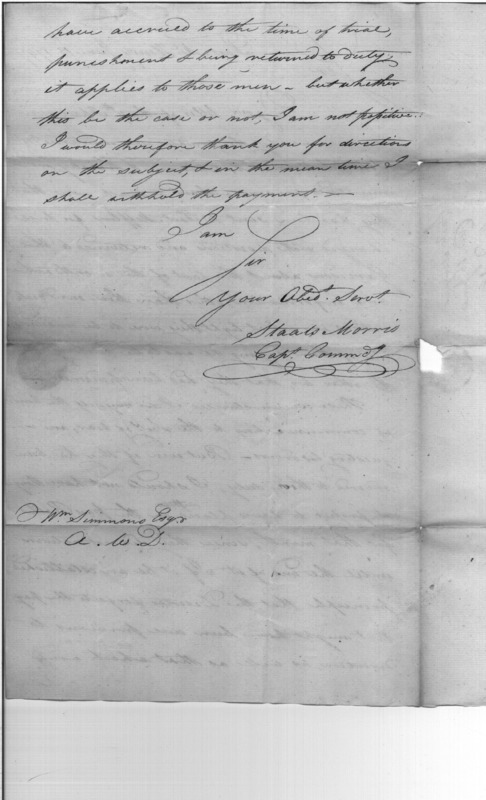 have accrued to the time of trial,
punishment & being returned to duty,
it applies to those men – but whether
this be the case or not, I am not positive.
I would therefore thank you for directions
on the subject, & in the mean time I
shall withhold the payment. –
I am
Sir
Your Obedt. Servt.
Staats Morris
Capt. Commdg
Wm. Simmons Esqr
A. W D.